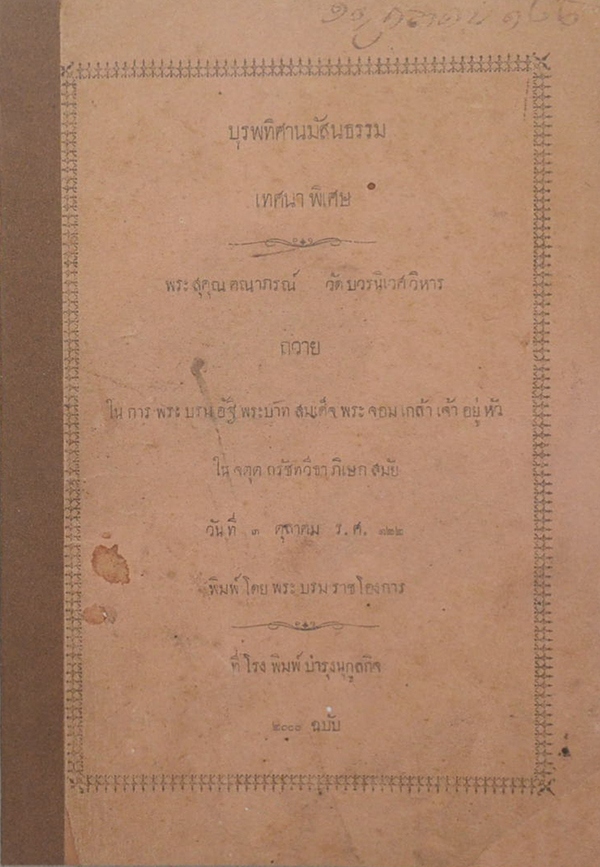 บุรพทิศานมัสนธรรม
เทศนา พิเศษ
พระ สุคุณ คณาภรณ์ วัด บวรนิเวศ วิหาร
ถวาย
ใน การ พระ บรม อัฐิ พระบาท สมเด็จ พระ จอม เกล้า เจ้า อยู่ หัว
ใน จตุต ถรัชทวีธา ภิเษก สมัย
วัน ที่ ๓ ตุลาคม ร.ศ. ๑๒๒
พิมพ์ โดย พระ บรม ราช โองการ
ที่ โรง พิมพ์ บำรุงนุกูลกิจ
๒๐๐๐ ฉบับ